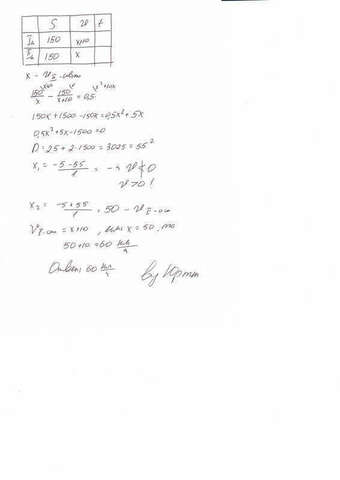 S v t
I а 150 x+10
II а 150 x
x - v II
150/x - 150/x+10 = 0,5
150x+1500-150x=0,5x²+5x
0,5x²+5x-1500=0
D=25+2·1500=3025=55²
x₁ = -5-55/1 = v < 0
v>0!
x₂ = -5+55/1 = 50 - v II
v I = x+10, если x = 50, то
50+10=60 км/ч
Ответ: 60 км/ч by